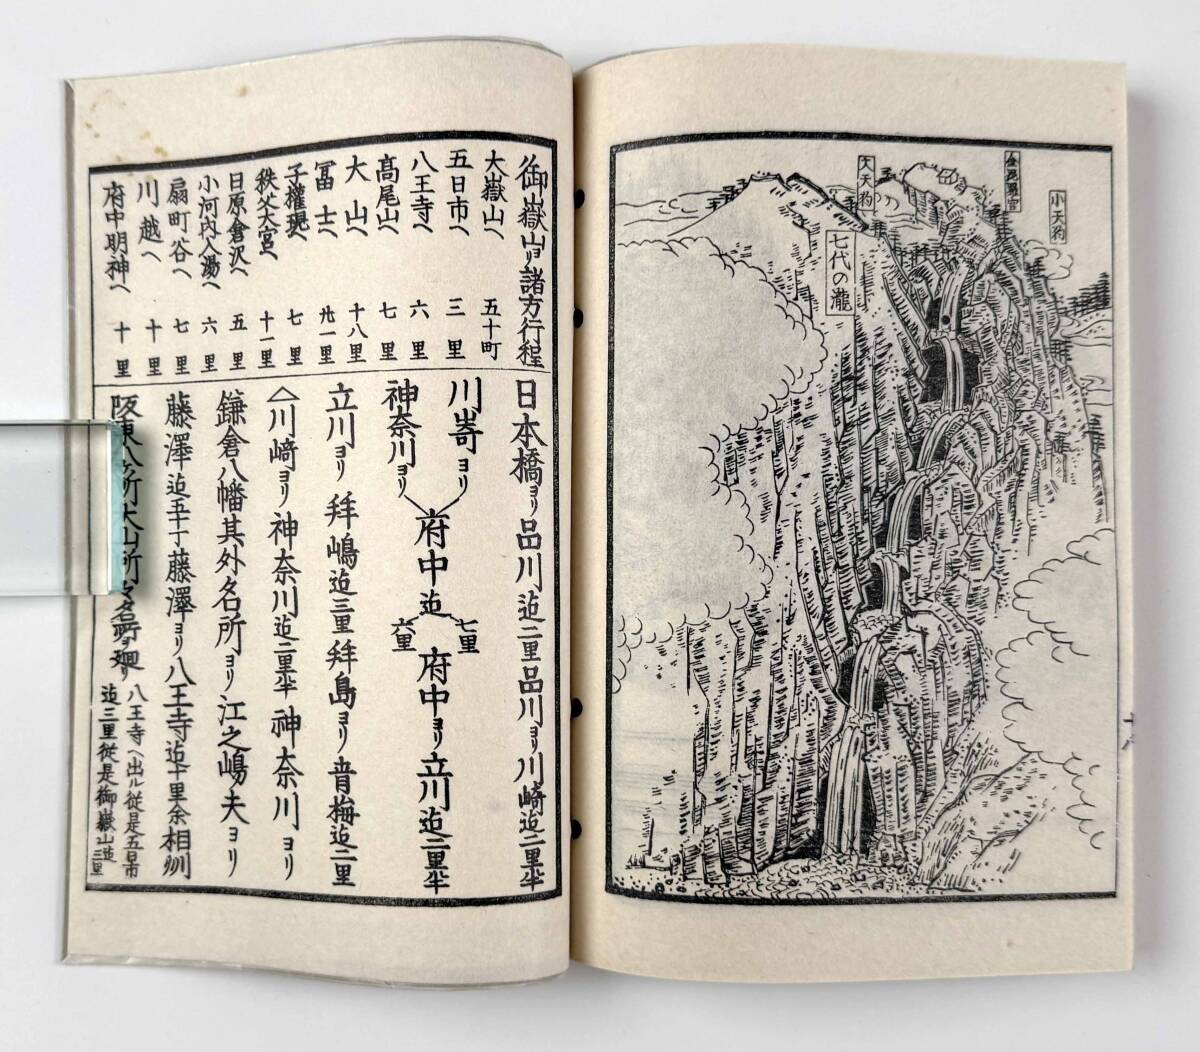 七代の瀧
大天狗
小天狗
御嶽山ヨリ諸方行程
大嶽山へ 五十町
五日市へ 三里
八王寺へ 六里
髙尾山へ 七里
大山へ 十八里
冨士へ 廾一里
子權現へ 七里
秩父大宮へ 十一里
日原倉沢へ 五里
小河内入湯へ 六里
扇町谷へ 七里
川越へ 十里
府中明神へ 十里
日本橋ヨリ品川迠二里品川ヨリ川崎迠二里半
川崎ヨリ
神奈川ヨリ
府中迠
七里
六里
府中ヨリ立川迠二里半
立川ヨリ拜嶋迠三里拜島ヨリ青梅迠二里
川崎ヨリ神奈川迠二里半神奈川ヨリ
鎌倉八幡其外名所ヨリ江之嶋夫ヨリ
藤澤迠五十丁藤澤ヨリ八王寺迠十里余相州
八王寺へ出ル従是五日市
迠三里従是御嶽山迠三里